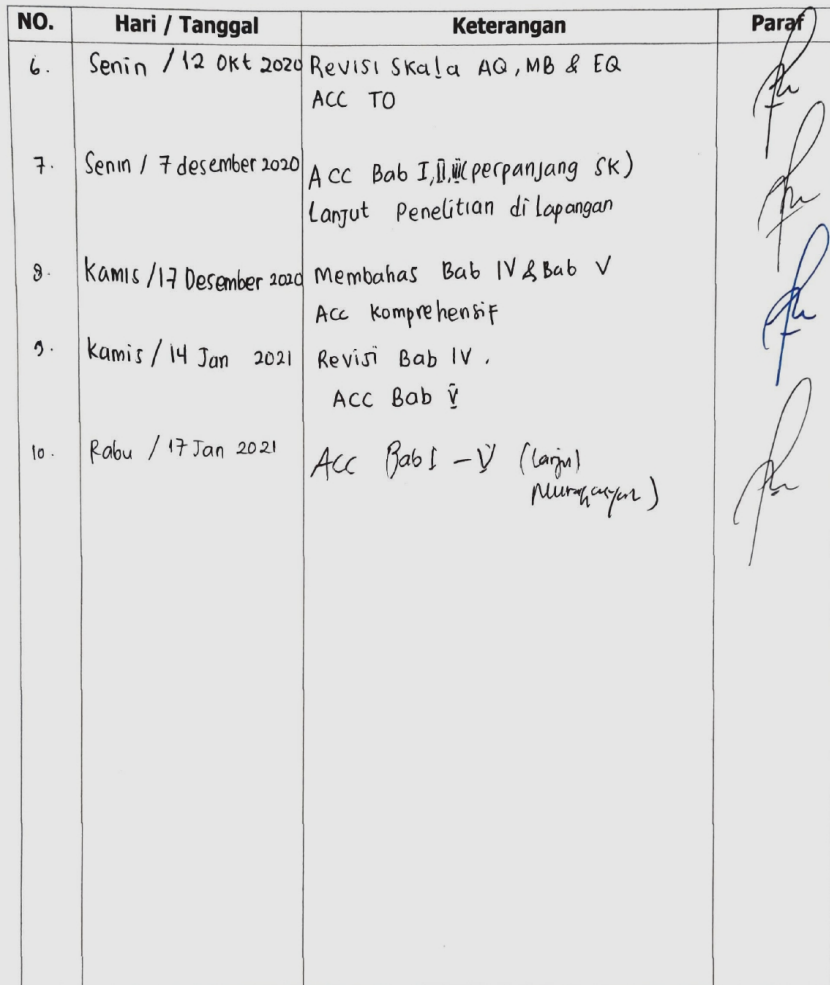 NO. Hari / Tanggal Keterangan Paraf
6. Senin / 12 Okt 2020 Revisi Skala AQ, MB & EQ
ACC TO
7. Senin / 7 desember 2020 Acc Bab I, II, III (perpanjang SK)
Lanjut Penelitian di Lapangan
8. Kamis / 17 Desember 2020 Membahas Bab IV & Bab V
Acc Komprehensif
9. Kamis / 14 Jan 2021 Revisi Bab IV.
ACC Bab V
10. Rabu / 17 Jan 2021 Acc Bab I - V (Lanjut